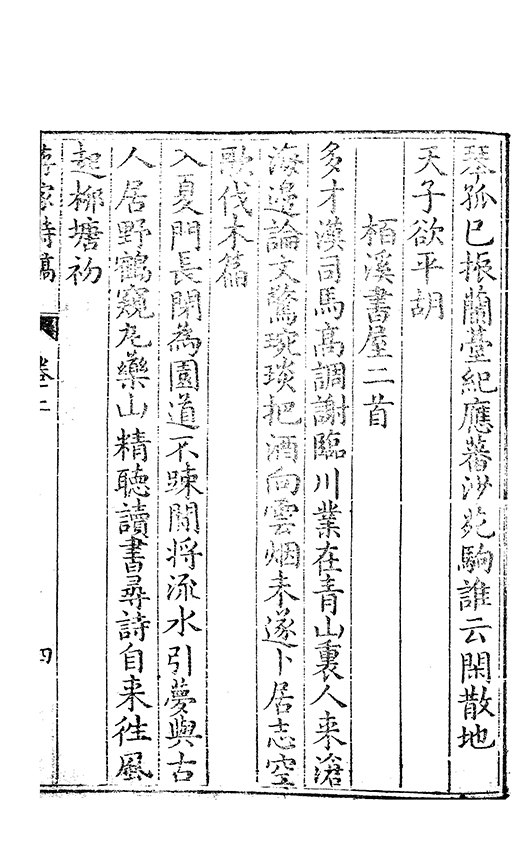 琴孤已振蘭臺紀應蕃沙苑駒誰云閑散地
天子欲平胡
栢溪書屋二首
多才漢司馬高調謝臨川業在青山裏人来滄
海邉論文驚琬琰把酒向雲烟未遂卜居志空
歌伐木篇
入夏門長閉為園道不踈閑將流水引夢與古
人居野鶴窺丸藥山精聽讀書尋詩自来徃風
起柳塘初
家詩稿
卷二
四